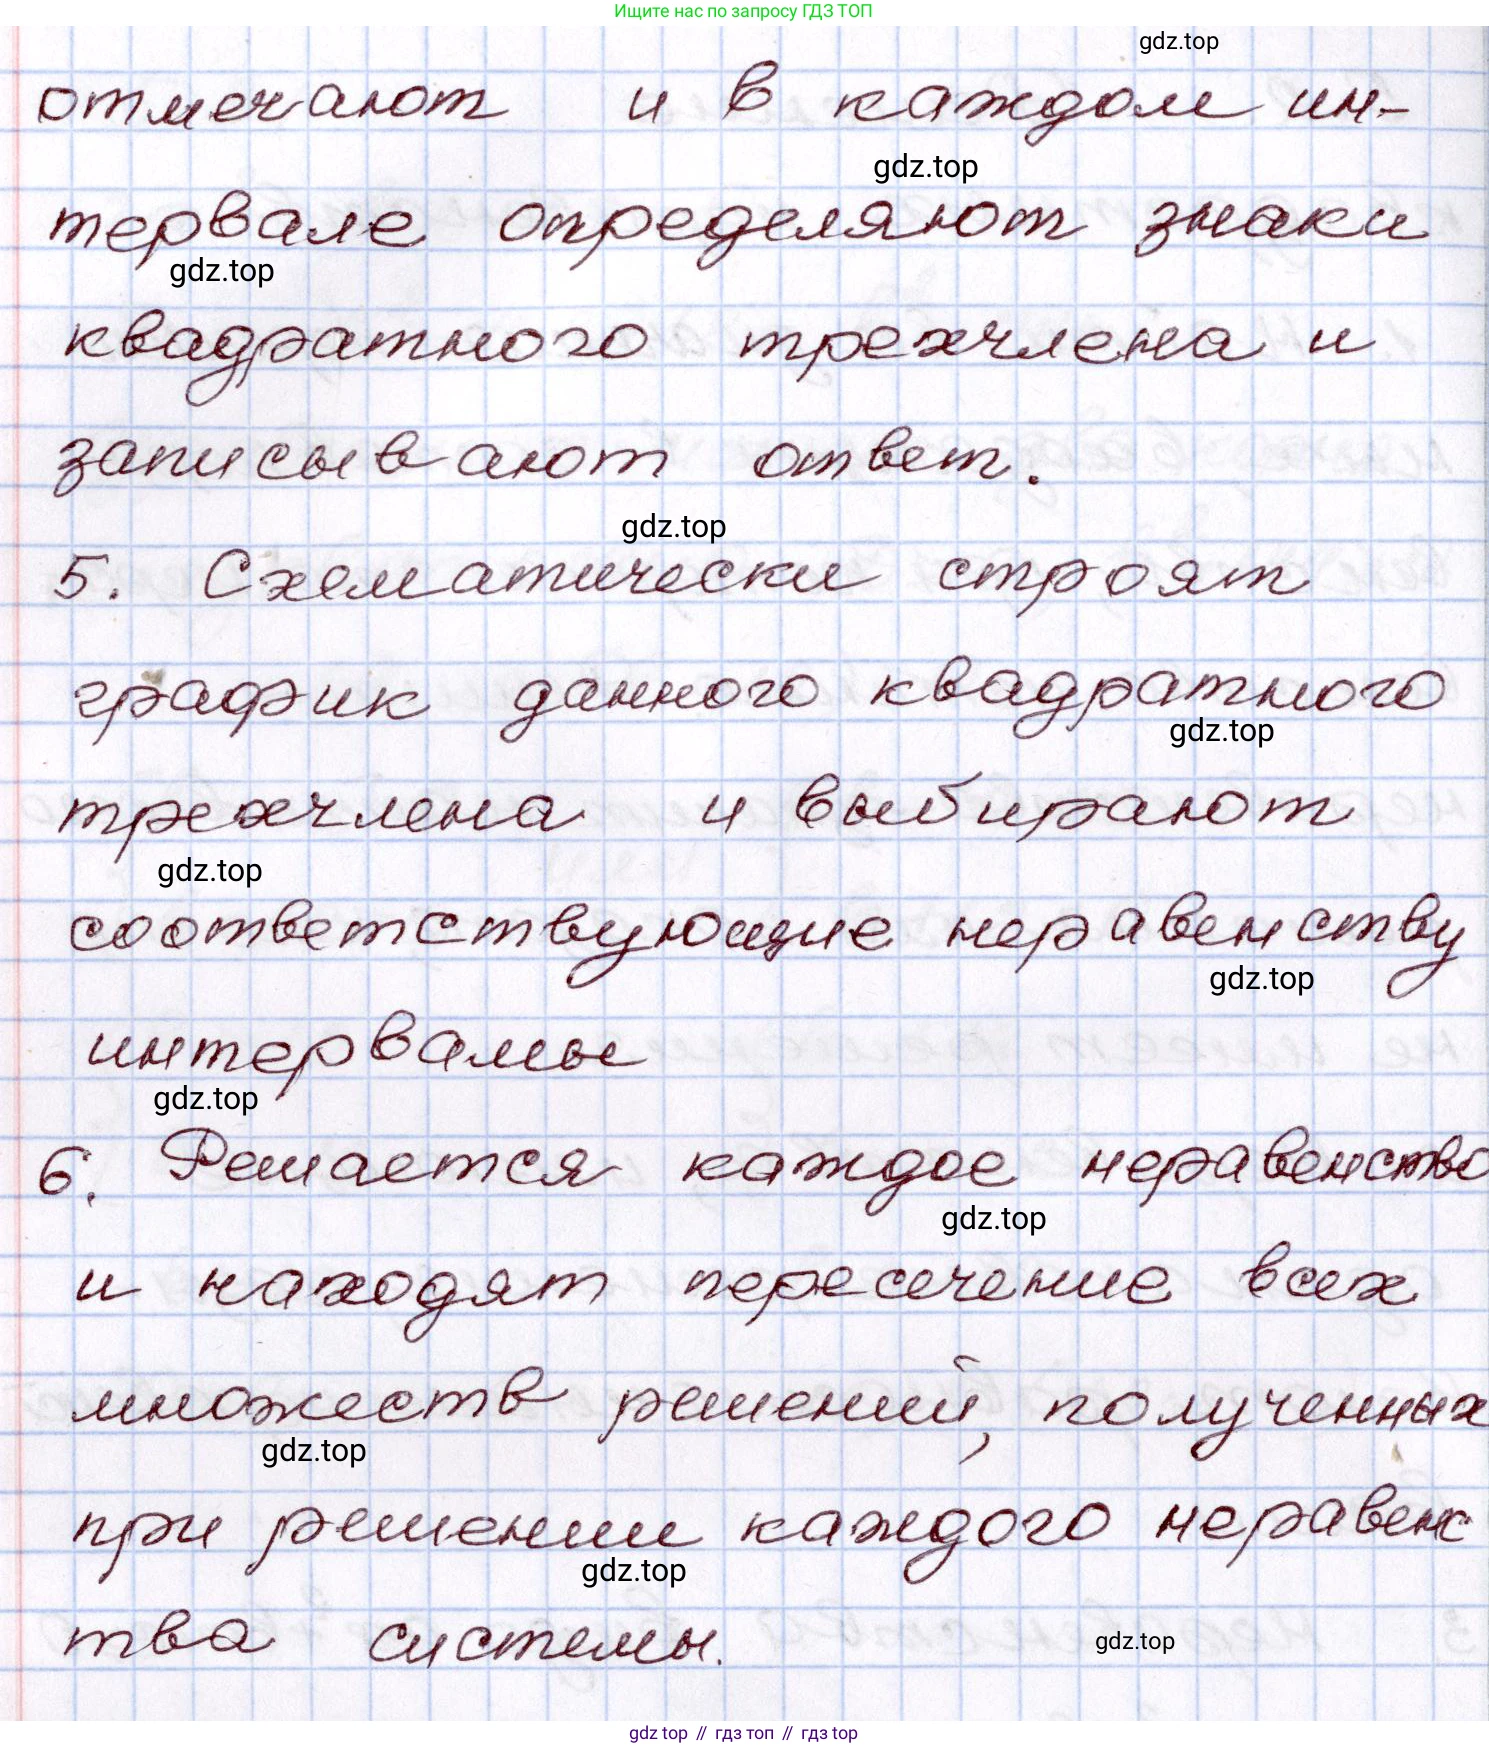 Ищите нас по запросу ГДЗ ТОП
gdz.top
отмечают и в каждом ин-
gdz.top
тервале определяют знаки
gdz.top
квадратного трехчлена и
записывают ответ.
gdz.top
5. Схематически строят
график данного квадратного
gdz.top
трехчлена и выбирают
gdz.top
соответствующие неравенству
gdz.top
интервалы
gdz.top
6. Решается каждое неравенство
gdz.top
и находят пересечение всех
множеств решений, полученных
gdz.top
при решении каждого неравенс
gdz.top
тва системы.
gdz.top
gdz top // гдз топ // гдз top